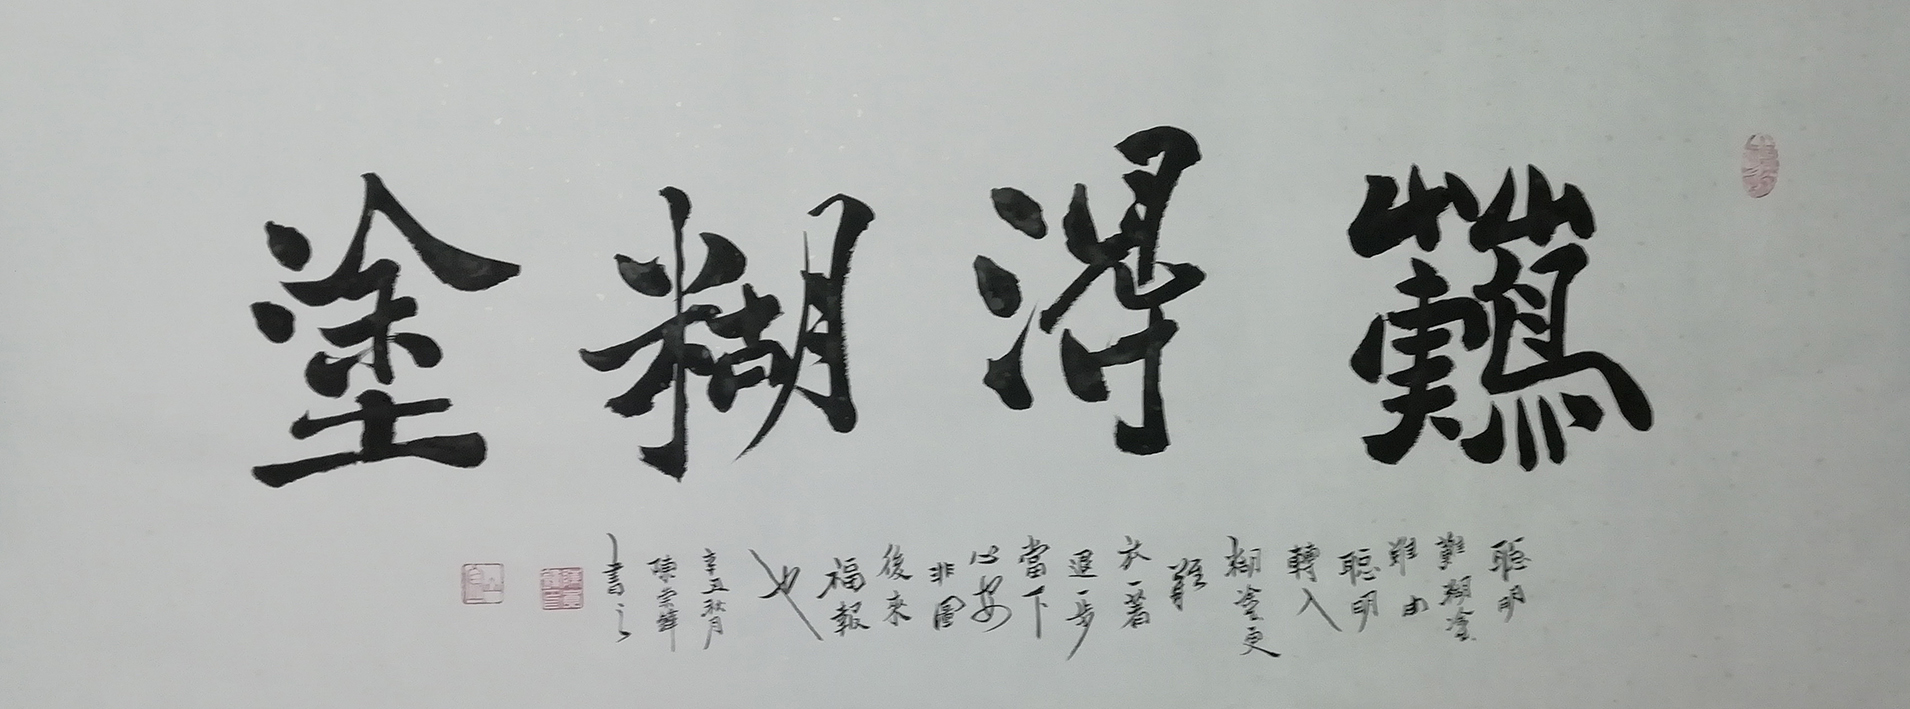 難得糊塗
聰明
難糊塗
難由
聰明
轉入
糊塗更
難
放一著
退一步
當下
心安
非圖
後來
福報
也
辛丑秋月
陳
書之